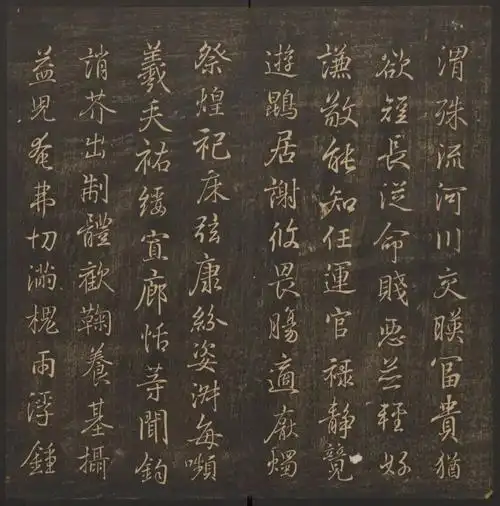 渭殊流河川交暎富貴猶
欲短長從命賤惡並輕好
謙敬能知任運官禄静覽
遊鵾居謝攸畏觴適厭燭
祭煌祀床弦康紛姿淵每嚬
羲夫祐綏宜廊恬等聞鈞
誚芥出制體歡鞠養基攝
益兕奄弗切滿槐雨浮鍾